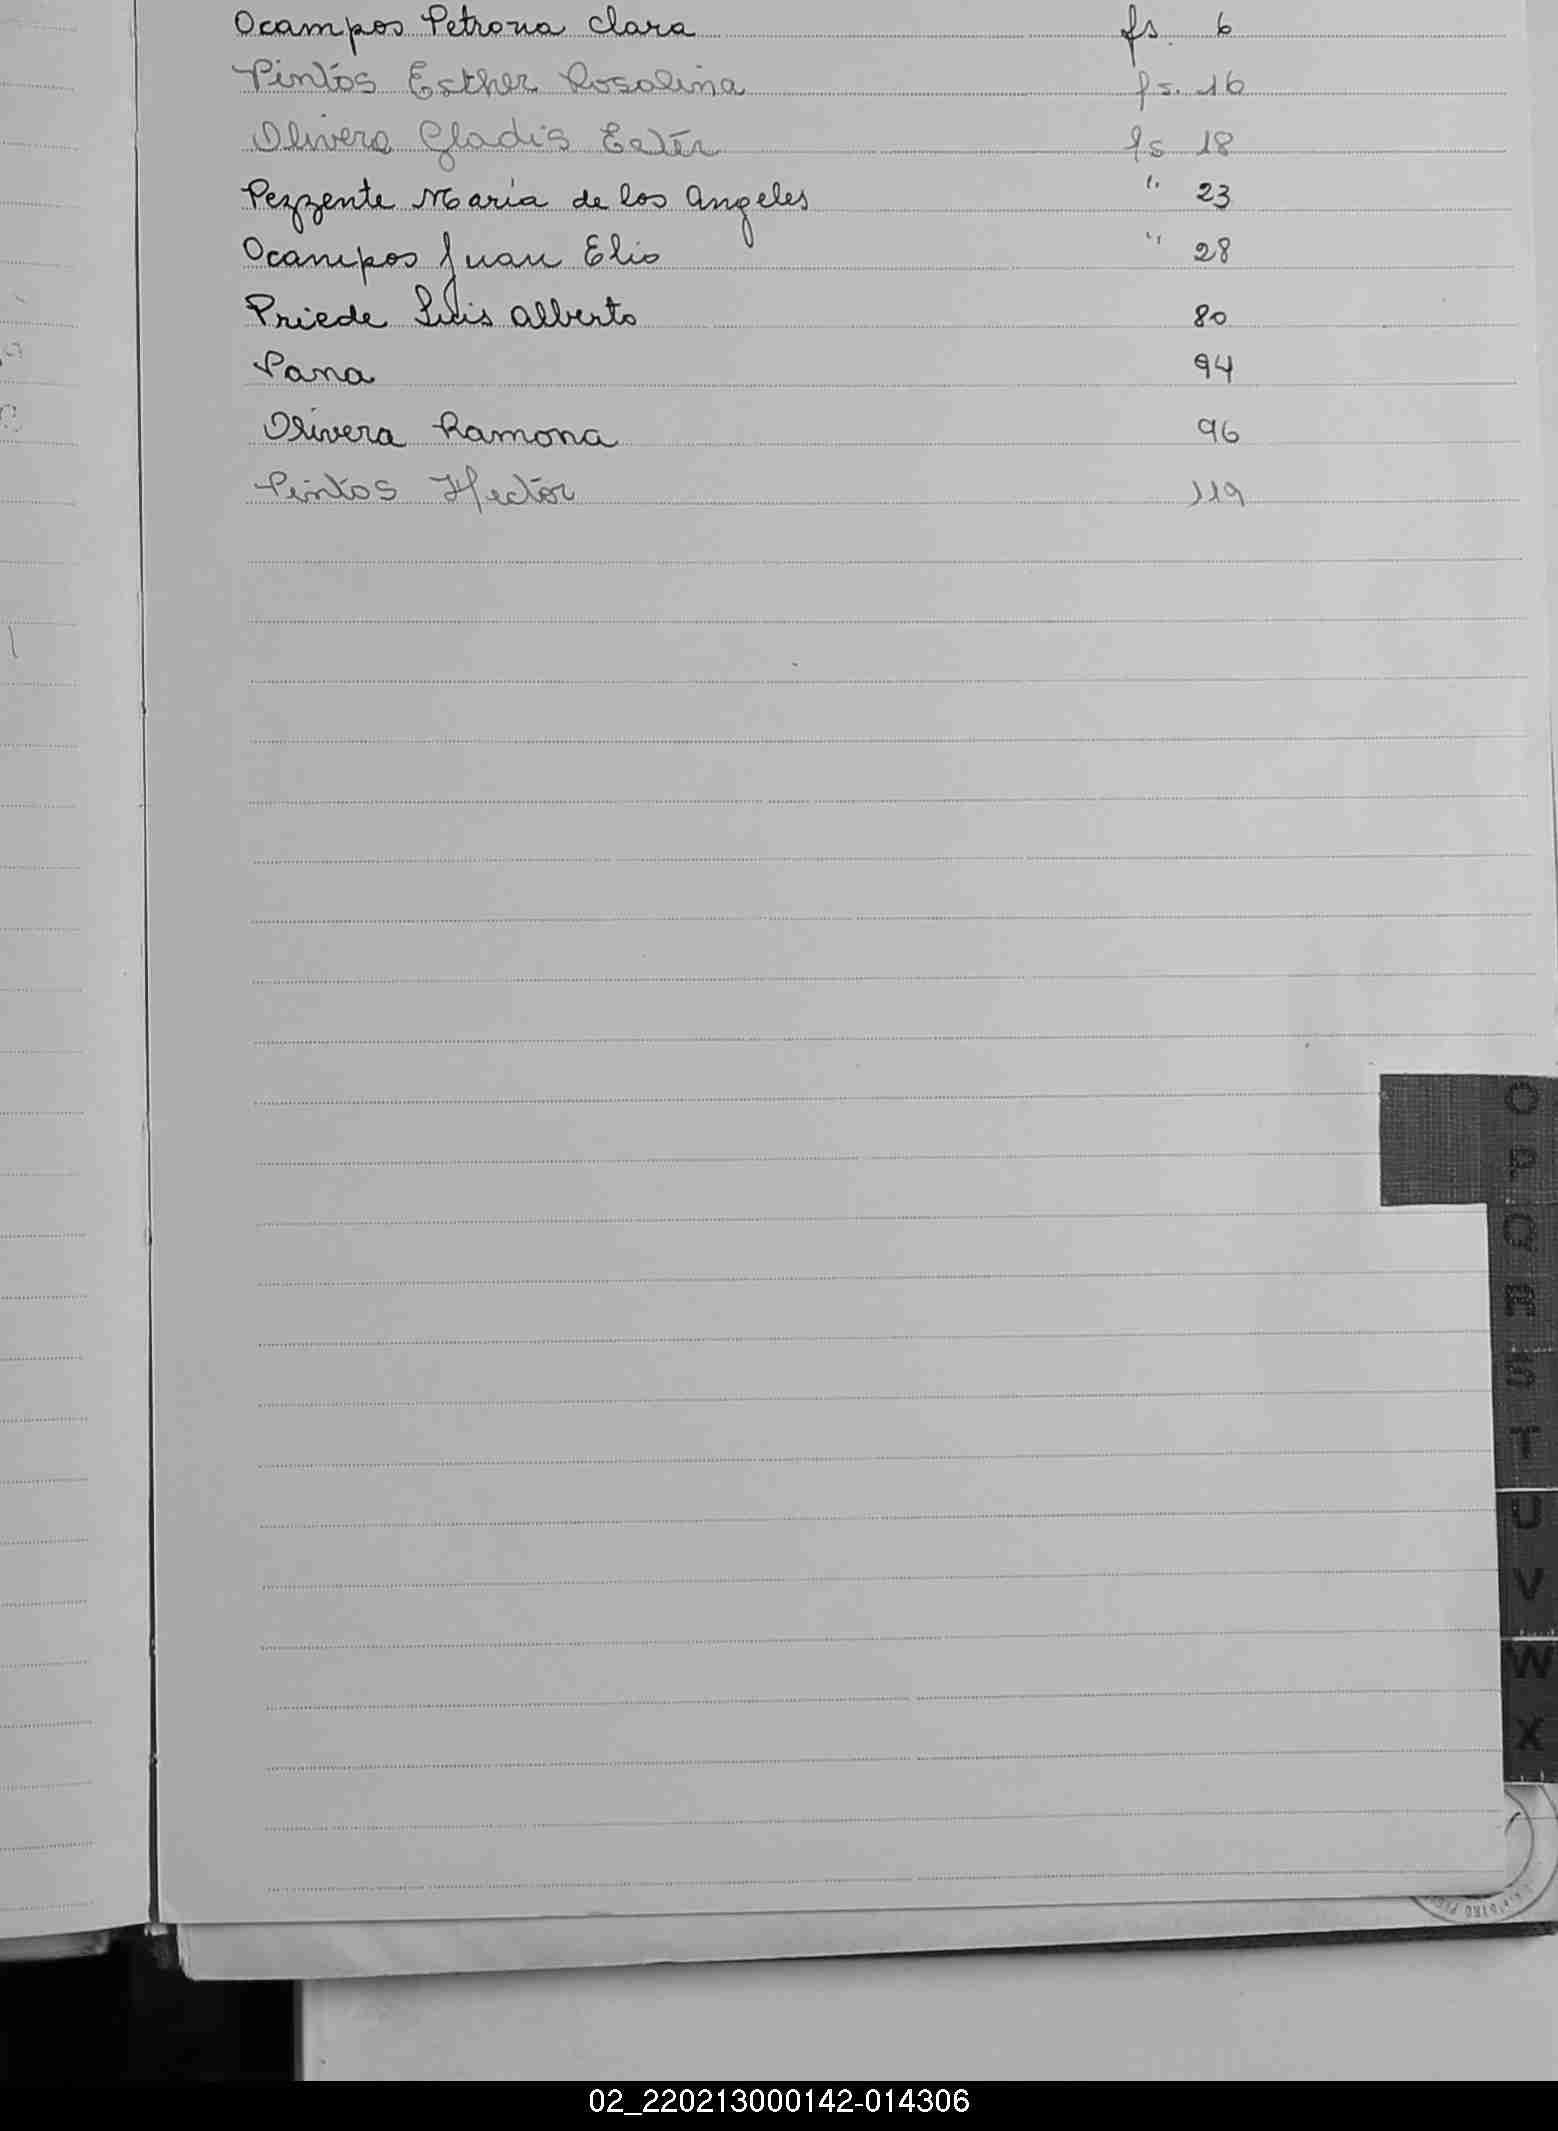 Ocampos Petrona Clara fs. 6
Pintos Esther Rosalina fs. 16
Olivera Gladis Ester fs 18
Pezzente María de los Angeles " 23
Ocampos Juan Elio " 28
Priede Luis Alberto 80
Pana 94
Olivera Ramona 96
Pintos Hector 119
O
P
Q
R
S
T
U
V
W
X
02_220213000142-014306